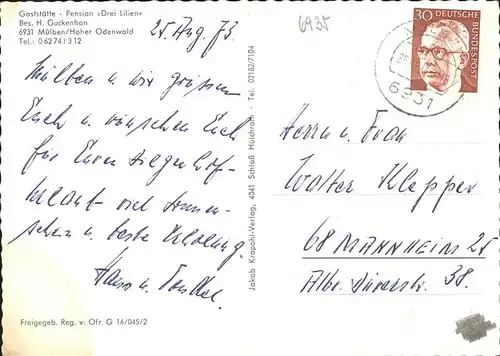 Gaststätte - Pension »Drei Lilien«
Bes. H. Guckenhan
6931 Mülben/Hoher Odenwald
Tel.: 0 62 74 / 3 12
25. Aug. 73.
Mülben u. wir grüssen
Euch u. wünschen Euch
für Euren
Urlaub viel Sonnen-
schein u. beste Erholung.
Hans u.
Freigegeb. Reg. v. Ofr. G 16/045/2
Jakob Krapohl-Verlag, 4041 Schloß Hülchrath - Tel. 02182/7104
6935
30 DEUTSCHE BUNDESPOST
6931
Herrn u. Frau
Walter Klepper
68 MANNHEIM 25
Albr. Dürerstr. 38.